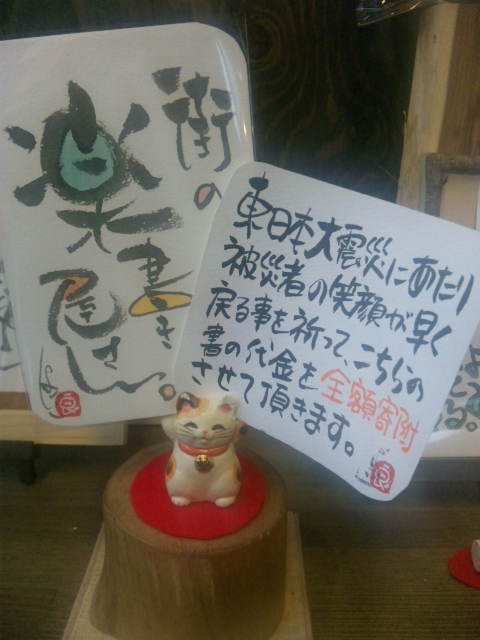 街の
楽書き
屋さん。
東日本大震災にあたり
被災者の笑顔が早く
戻る事を祈って、こちらの
書の代金を全額寄附
させて頂きます。
良
良